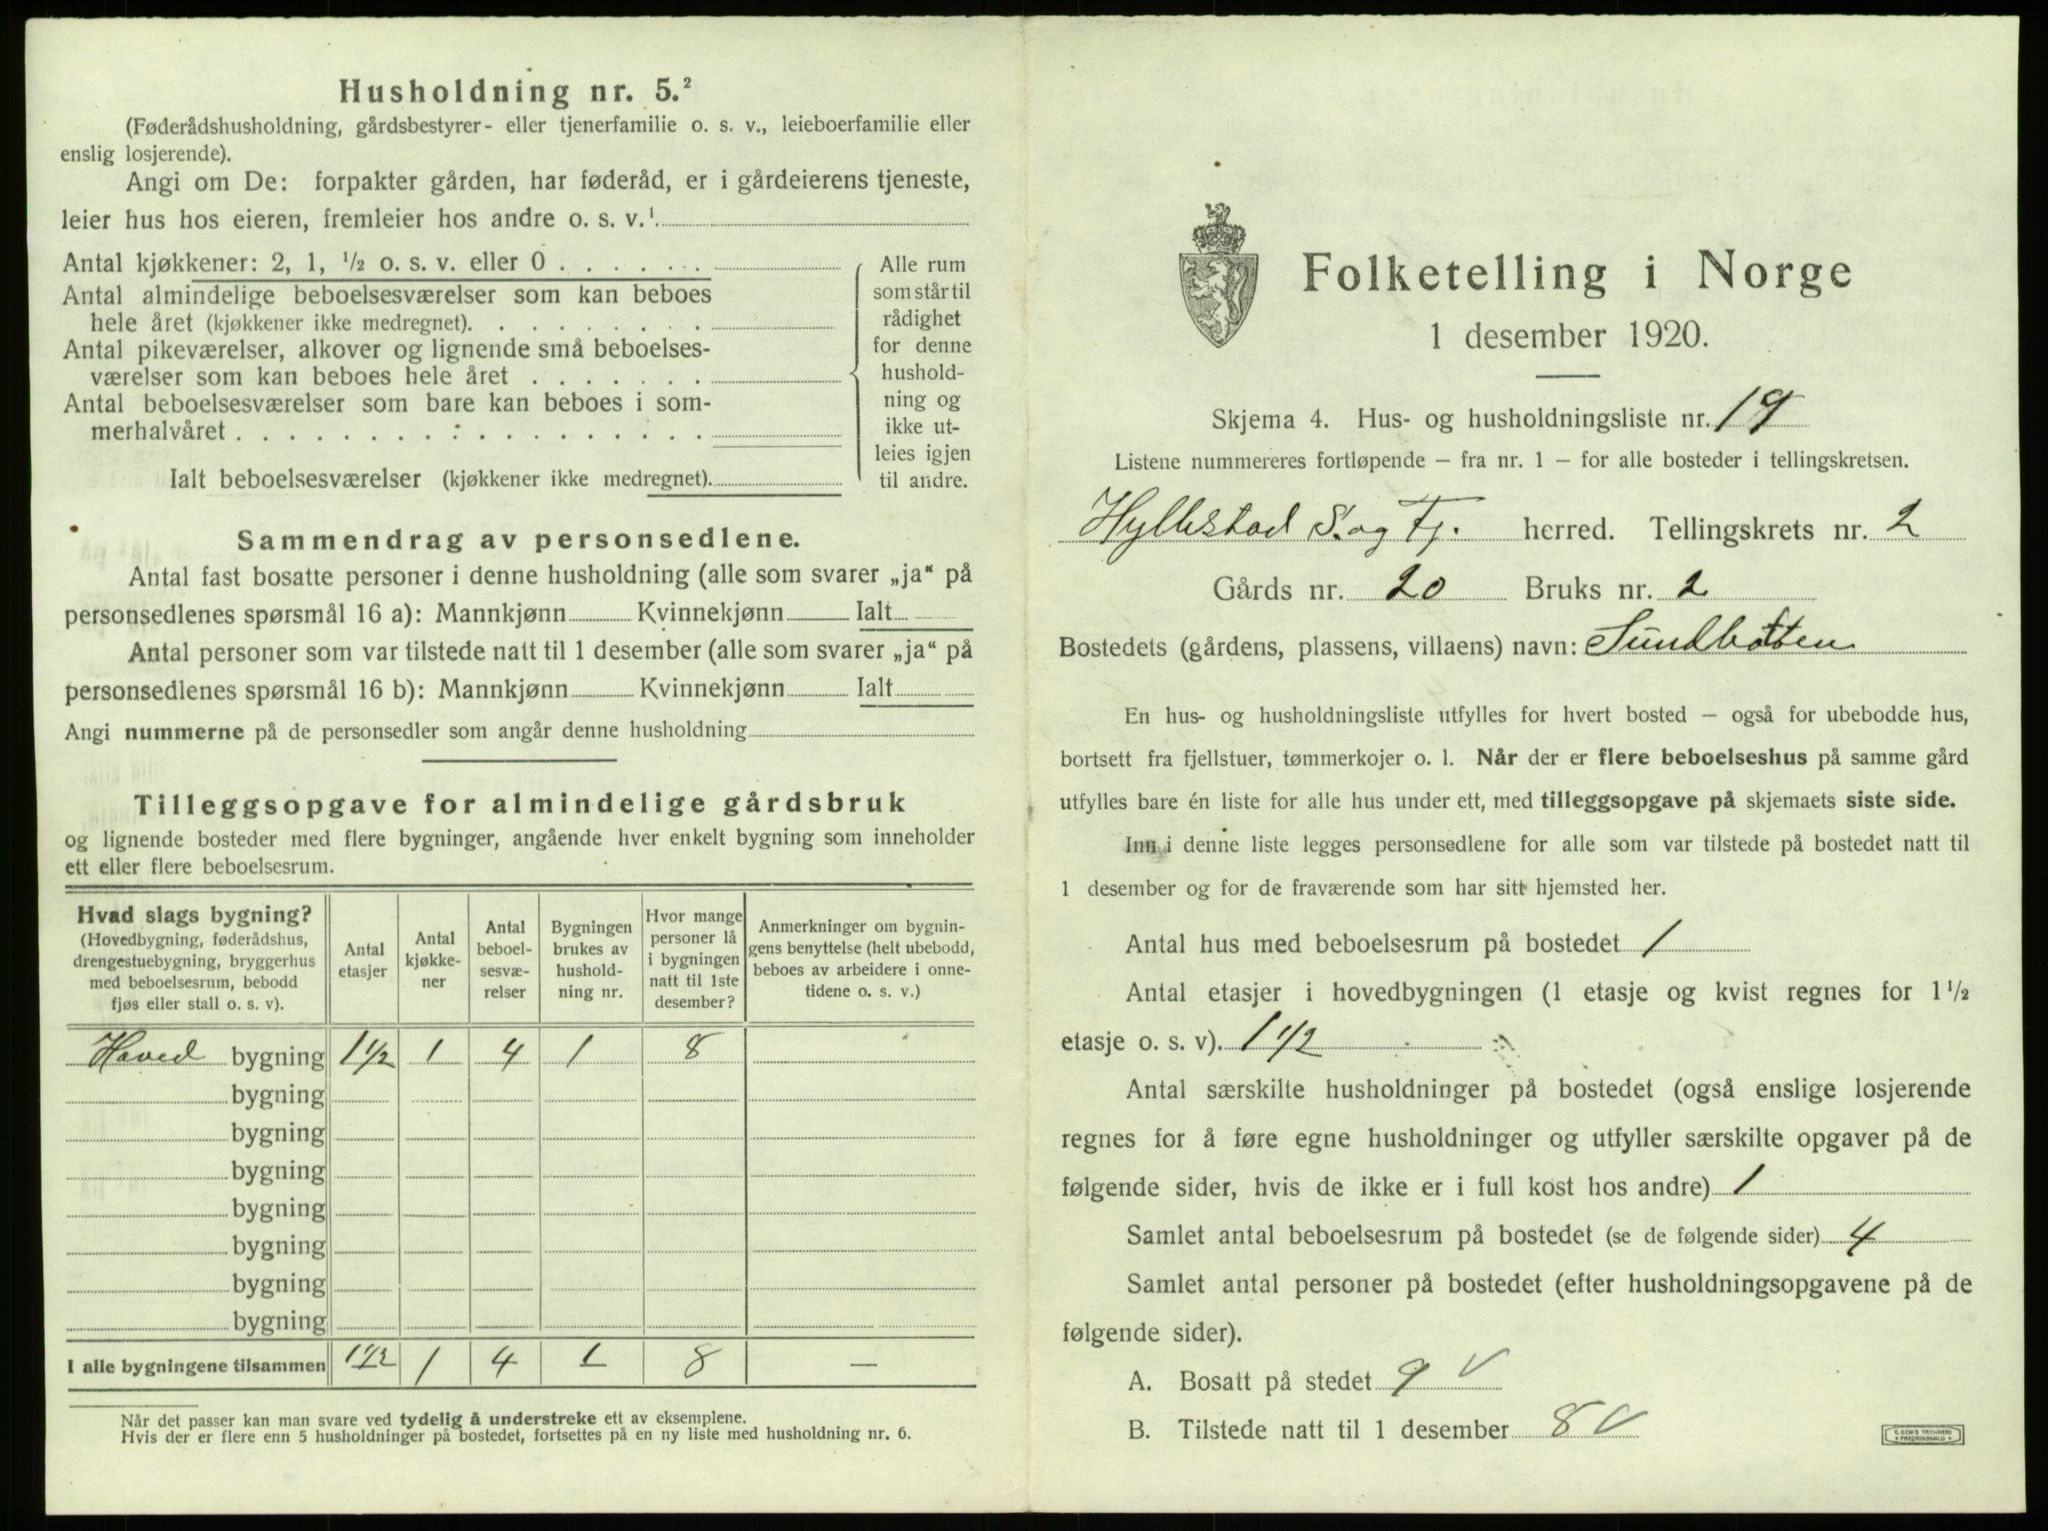 Husholdning nr. 5.²
(Føderådshusholdning, gårdsbestyrer- eller tjenerfamilie o. s. v., leieboerfamilie eller
enslig losjerende).
Angi om De: forpakter gården, har føderåd, er i gårdeierens tjeneste,
leier hus hos eieren, fremleier hos andre o. s. v.¹
Antal kjøkkener: 2, 1, ½ o. s. v. eller 0 . . . . . .
Antal almindelige beboelsesværelser som kan beboes
hele året (kjøkkener ikke medregnet). . . . . . . . .
Antal pikeværelser, alkover og lignende små beboelses-
værelser som kan beboes hele året . . . . . . .
Antal beboelsesværelser som bare kan beboes i som-
merhalvåret . . . . . . . . . . . . . . . . . .
Ialt beboelsesværelser (kjøkkener ikke medregnet).
Alle rum
som står til
rådighet
for denne
hushold-
ning og
ikke ut-
leies igjen
til andre.
Sammendrag av personsedlene.
Antal fast bosatte personer i denne husholdning (alle som svarer „ja“ på
personsedlenes spørsmål 16 a): Mannkjønn Kvinnekjønn Ialt
Antal personer som var tilstede natt til 1 desember (alle som svarer „ja“ på
personsedlenes spørsmål 16 b): Mannkjønn Kvinnekjønn Ialt
Angi nummerne på de personsedler som angår denne husholdning
Tilleggsopgave for almindelige gårdsbruk
og lignende bosteder med flere bygninger, angående hver enkelt bygning som inneholder
ett eller flere beboelsesrum.
Hvad slags bygning?
(Hovedbygning, føderådshus,
drengestuebygning, bryggerhus
med beboelsesrum, bebodd
fjøs eller stall o. s. v).
Antal
etasjer
Antal
kjøkke-
ner
Antal
beboel-
sesvæ-
relser
Bygningen
brukes av
hushold-
ning nr.
Hvor mange
personer lå
i bygningen
natt til 1ste
desember?
Anmerkninger om bygnin-
gens benyttelse (helt ubebodd,
beboes av arbeidere i onne-
tidene o. s. v.)
Hoved bygning 1½ 1 4 1 8
bygning
bygning
bygning
bygning
bygning
bygning
bygning
I alle bygningene tilsammen 1½ 1 4 1 8 —
Når det passer kan man svare ved tydelig å understreke ett av eksemplene.
Hvis der er flere enn 5 husholdninger på bostedet, fortsettes på en ny liste med husholdning nr. 6.
Folketelling i Norge
1 desember 1920.
Skjema 4. Hus- og husholdningsliste nr. 19
Listene nummereres fortløpende – fra nr. 1 – for alle bosteder i tellingskretsen.
Hyllestad S. og Fj. herred. Tellingskrets nr. 2
Gårds nr. 20 Bruks nr. 2
Bostedets (gårdens, plassens, villaens) navn: Sundbotten
En hus- og husholdningsliste utfylles for hvert bosted – også for ubebodde hus,
bortsett fra fjellstuer, tømmerkojer o. l. Når der er flere beboelseshus på samme gård
utfylles bare én liste for alle hus under ett, med tilleggsopgave på skjemaets siste side.
Inn i denne liste legges personsedlene for alle som var tilstede på bostedet natt til
1 desember og for de fraværende som har sitt hjemsted her.
Antal hus med beboelsesrum på bostedet 1
Antal etasjer i hovedbygningen (1 etasje og kvist regnes for 1½
etasje o. s. v). 1½
Antal særskilte husholdninger på bostedet (også enslige losjerende
regnes for å føre egne husholdninger og utfyller særskilte opgaver på de
følgende sider, hvis de ikke er i full kost hos andre) 1
Samlet antal beboelsesrum på bostedet (se de følgende sider) 4
Samlet antal personer på bostedet (efter husholdningsopgavene på de
følgende sider).
A. Bosatt på stedet 9 V
B. Tilstede natt til 1 desember 8 V
E. SEM'S TRYKKERI
FREDRIKSHALD